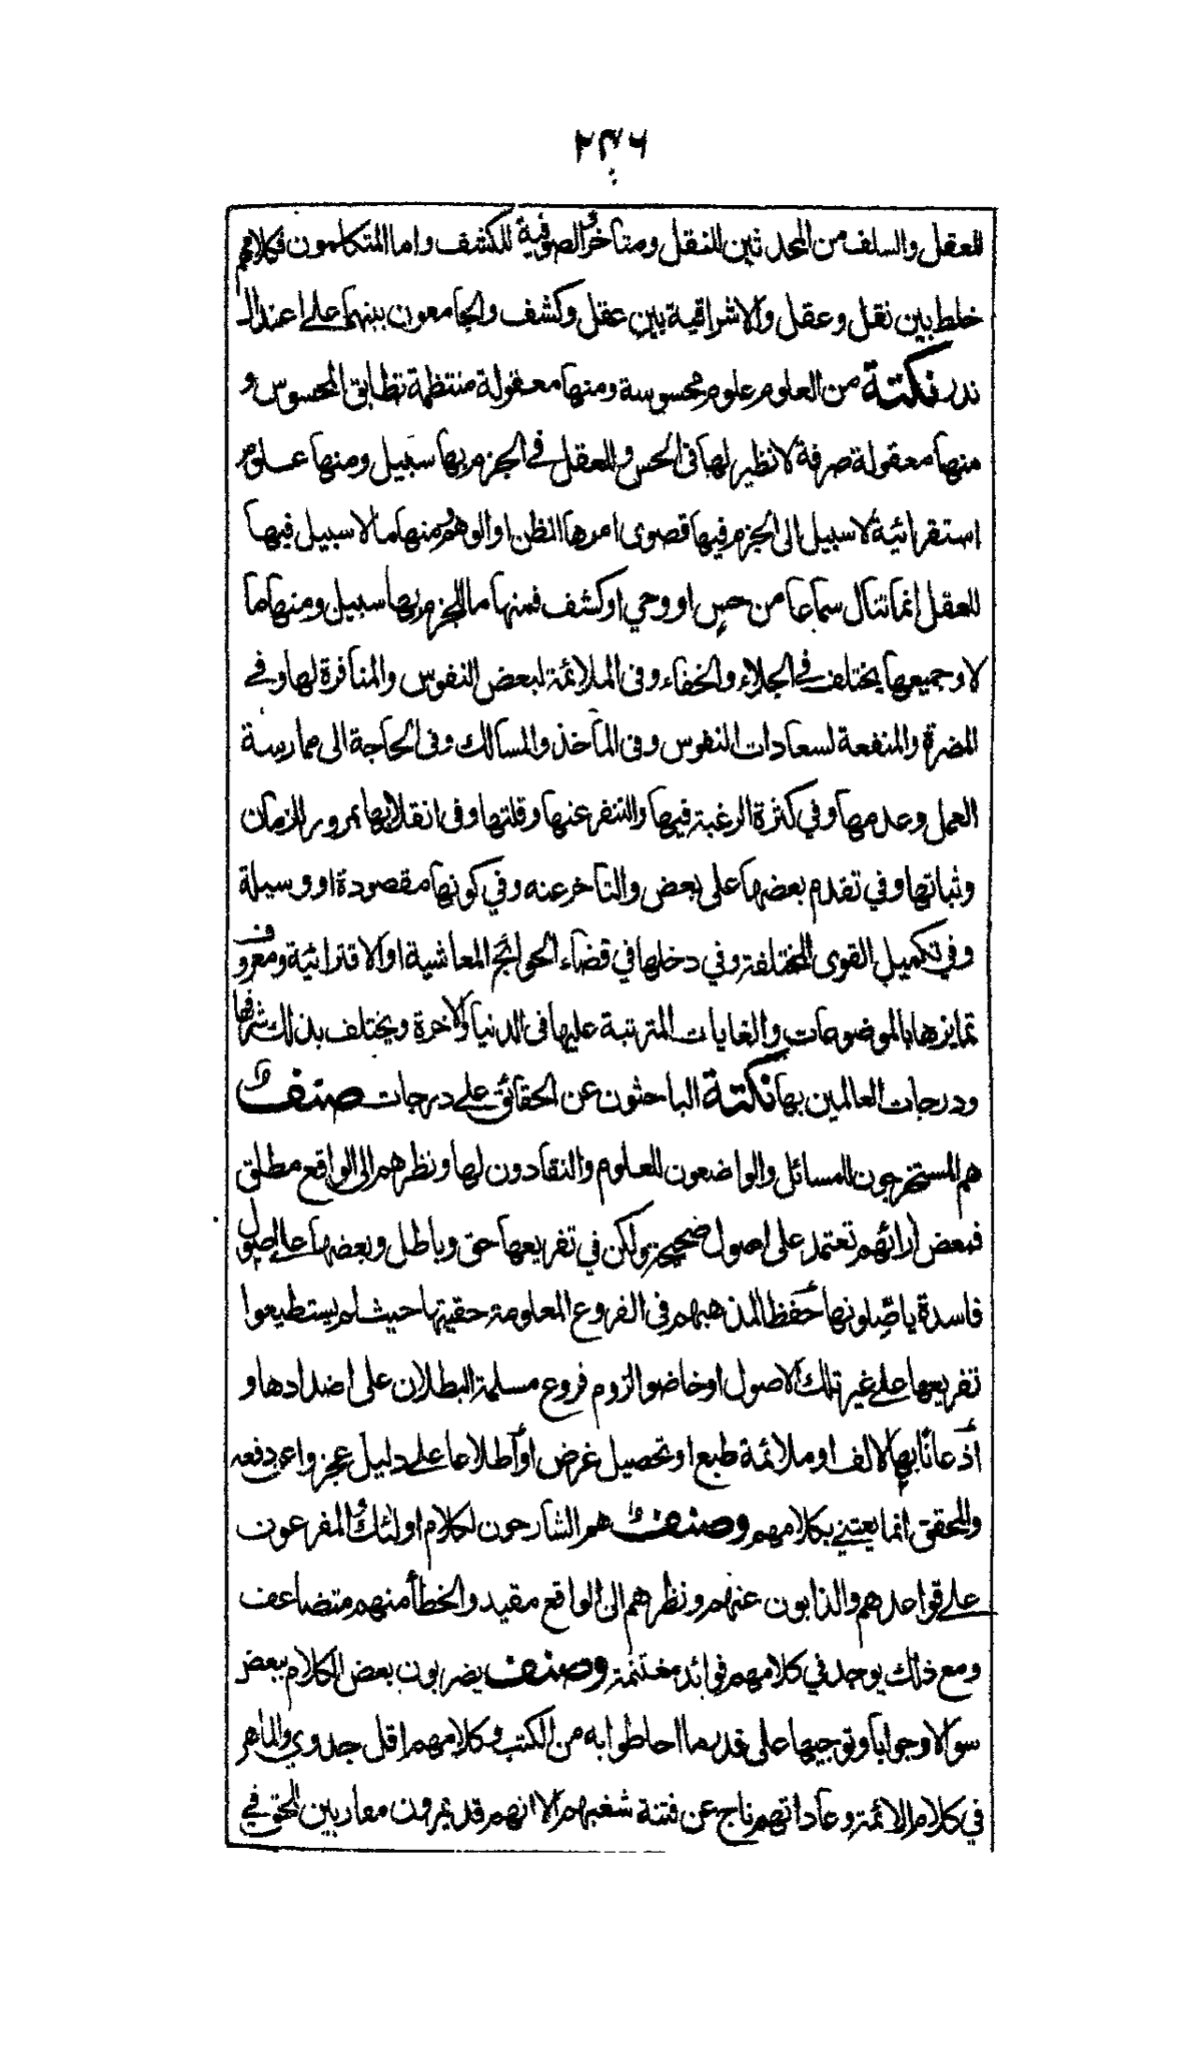 ٢٣٦
للعقل والسلف من المحدثين للنقل ومتأخر الصوفية للكشف واما المتكلمون فكلامهم
خلط بين نقل وعقل والاشراقية بين عقل وكشف والجامعون بينهما على اعتدال
ندر نكتة من العلوم علوم محسوسة ومنها معقولة منتظمة تطابق المحسوس و
منها معقولة صرفة لا نظير لها في الحس وللعقل في الجزم بها سبيل ومنها علوم
استقرائية لا سبيل الى الجزم فيها قصوى امرها الظن او الوهم ومنها ما لا سبيل فيها
للعقل انما تنال سماعا من حس او وحي او كشف فمنها ما للجزم بها سبيل ومنها ما
لا وجميعها يختلف في الجلاء والخفاء وفى الملائمة لبعض النفوس والمنافرة لها وفي
المضرة والمنفعة لسعادات النفوس وفى المآخذ والمسالك وفى الحاجة الى ممارسة
العمل وعدمها وفي كثرة الرغبة فيها والتنفر عنها وقلتها وفى انقلابها بمرور الزمان
وثباتها وفي تقدم بعضها على بعض والتاخر عنه وفي كونها مقصودة او وسيلة
وفي تكميل القوى المختلفة وفي دخلها في قضاء الحوائج المعاشية او الاقترابية ومعروف
تمايزها بالموضوعات والغايات المترتبة عليها فى الدنيا والاخرة ويختلف بذلك شرفها
ودرجات العالمين بها نكتة الباحثون عن الحقائق على درجات صنف
هم المستخرجون للمسائل والواضعون للعلوم والنقادون لها ونظرهم الى الواقع مطلق
فبعض ارائهم تعتمد على اصول صحيحة ولكن في تفريعها حق وباطل وبعضها على اصول
فاسدة ياصلونها حفظا لمذهبهم فى الفروع المعلومة حقيتها حيث لم يستطيعوا
تفريعها على غير تلك الاصول او خاضوا لزوم فروع مسلمة البطلان على اضدادها و
اذعانا بها لالف او ملائمة طبع او تحصيل غرض او اطلاعا على دليل عجزوا عن دفعه
والمحقق انما يعتني بكلامهم وصنف هم الشارحون لكلام اولئك المفرعون
على قواعدهم والذابون عنهم ونظرهم الى الواقع مقيد والخطأ منهم متضاعف
ومع ذلك يوجد في كلامهم فوائد مغتنمة وصنف يضربون بعض الكلام ببعض
سوالا وجوابا وتوجيها على قدر ما احاطوا به من الكتب وكلامهم اقل جدوي والماهر
في كلام الائمة وعاداتهم ناج عن فتنة شغبهم الا انهم قد الحق في